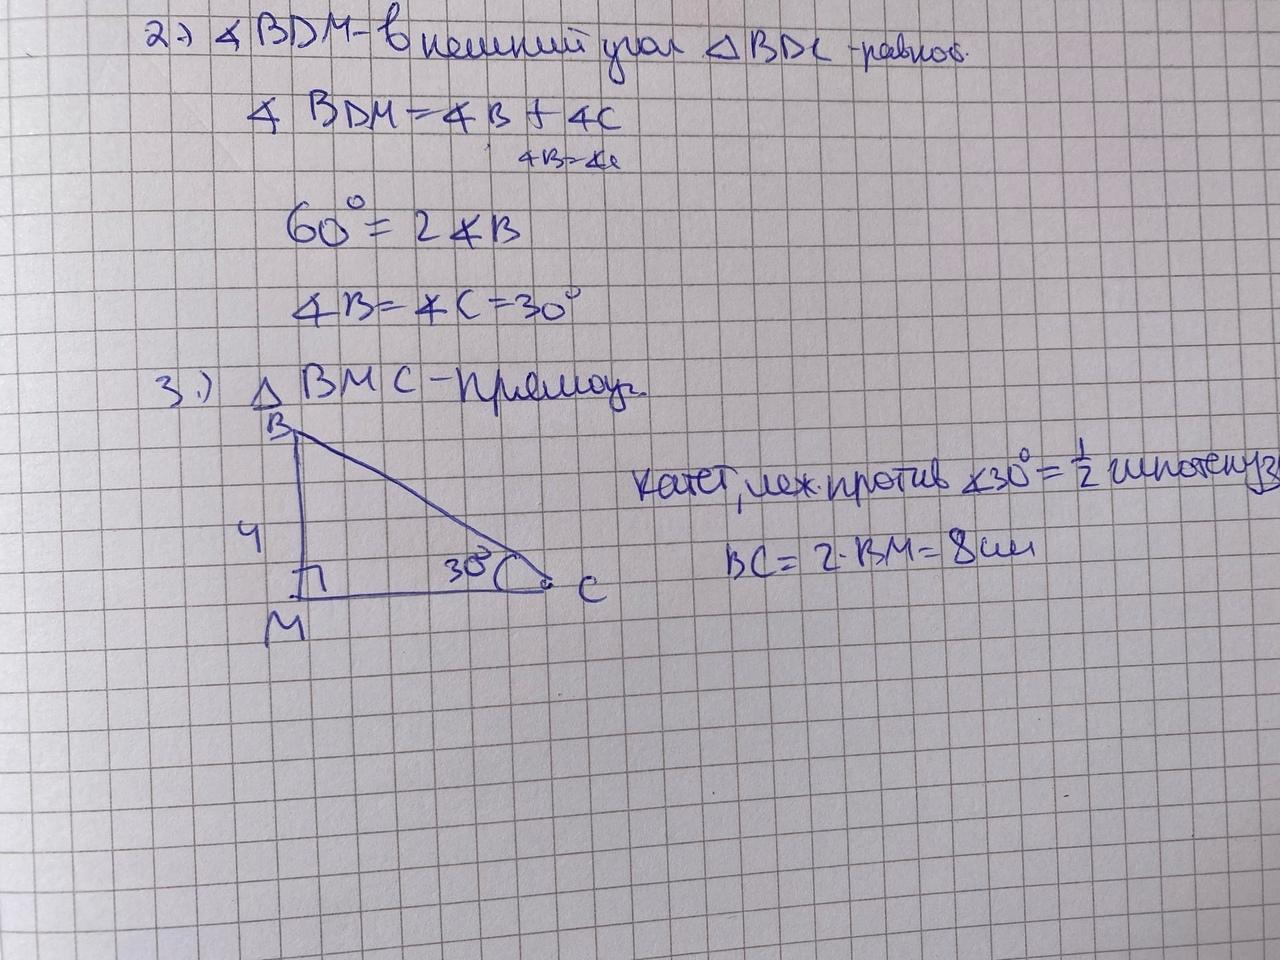 2.) ∡ BDM - внешний угол △ BDC - равноб.
∡ BDM = ∡ B + ∡ C
∡B = ∡C
60° = 2 ∡ B
∡ B = ∡ C = 30°
3.) △ BMC - прямоуг.
B
катет, леж. против ∡30° = 1/2 гипотенуз
4
BC = 2 · BM = 8 см
30°
C
M